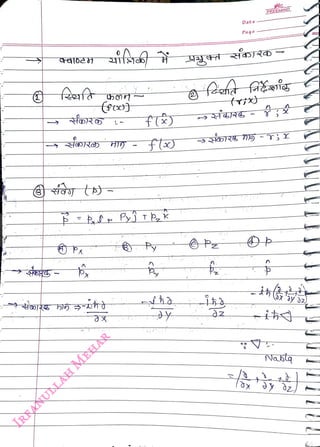 Date
Page
→ क्वाण्टम यांत्रिकी में प्रयुक्त संकारक -
① स्थिति फलन - ② स्थिति निर्देशांक
[f(x)] (r; x)
→ संकारक :- f(x̂) → संकारक - r̂ ; x̂
→ संकारक मान - f(x) → संकारक मान - r ; x
③ संवेग (p) -
p⃗ = Pxî + Pyĵ + Pzk̂
Ⓐ Px Ⓑ Py Ⓒ Pz Ⓓ P
→ संकारक - p̂x p̂y p̂z p̂
→ संकारक मान → -iħ∂/∂x -iħ∂/∂y -iħ∂/∂z -iħ(∂/∂x + ∂/∂y + ∂/∂z)
- iħ∇
∵ ∇ :-
Nabla
= (∂/∂x + ∂/∂y + ∂/∂z)
IRFANULLAH MEHAR